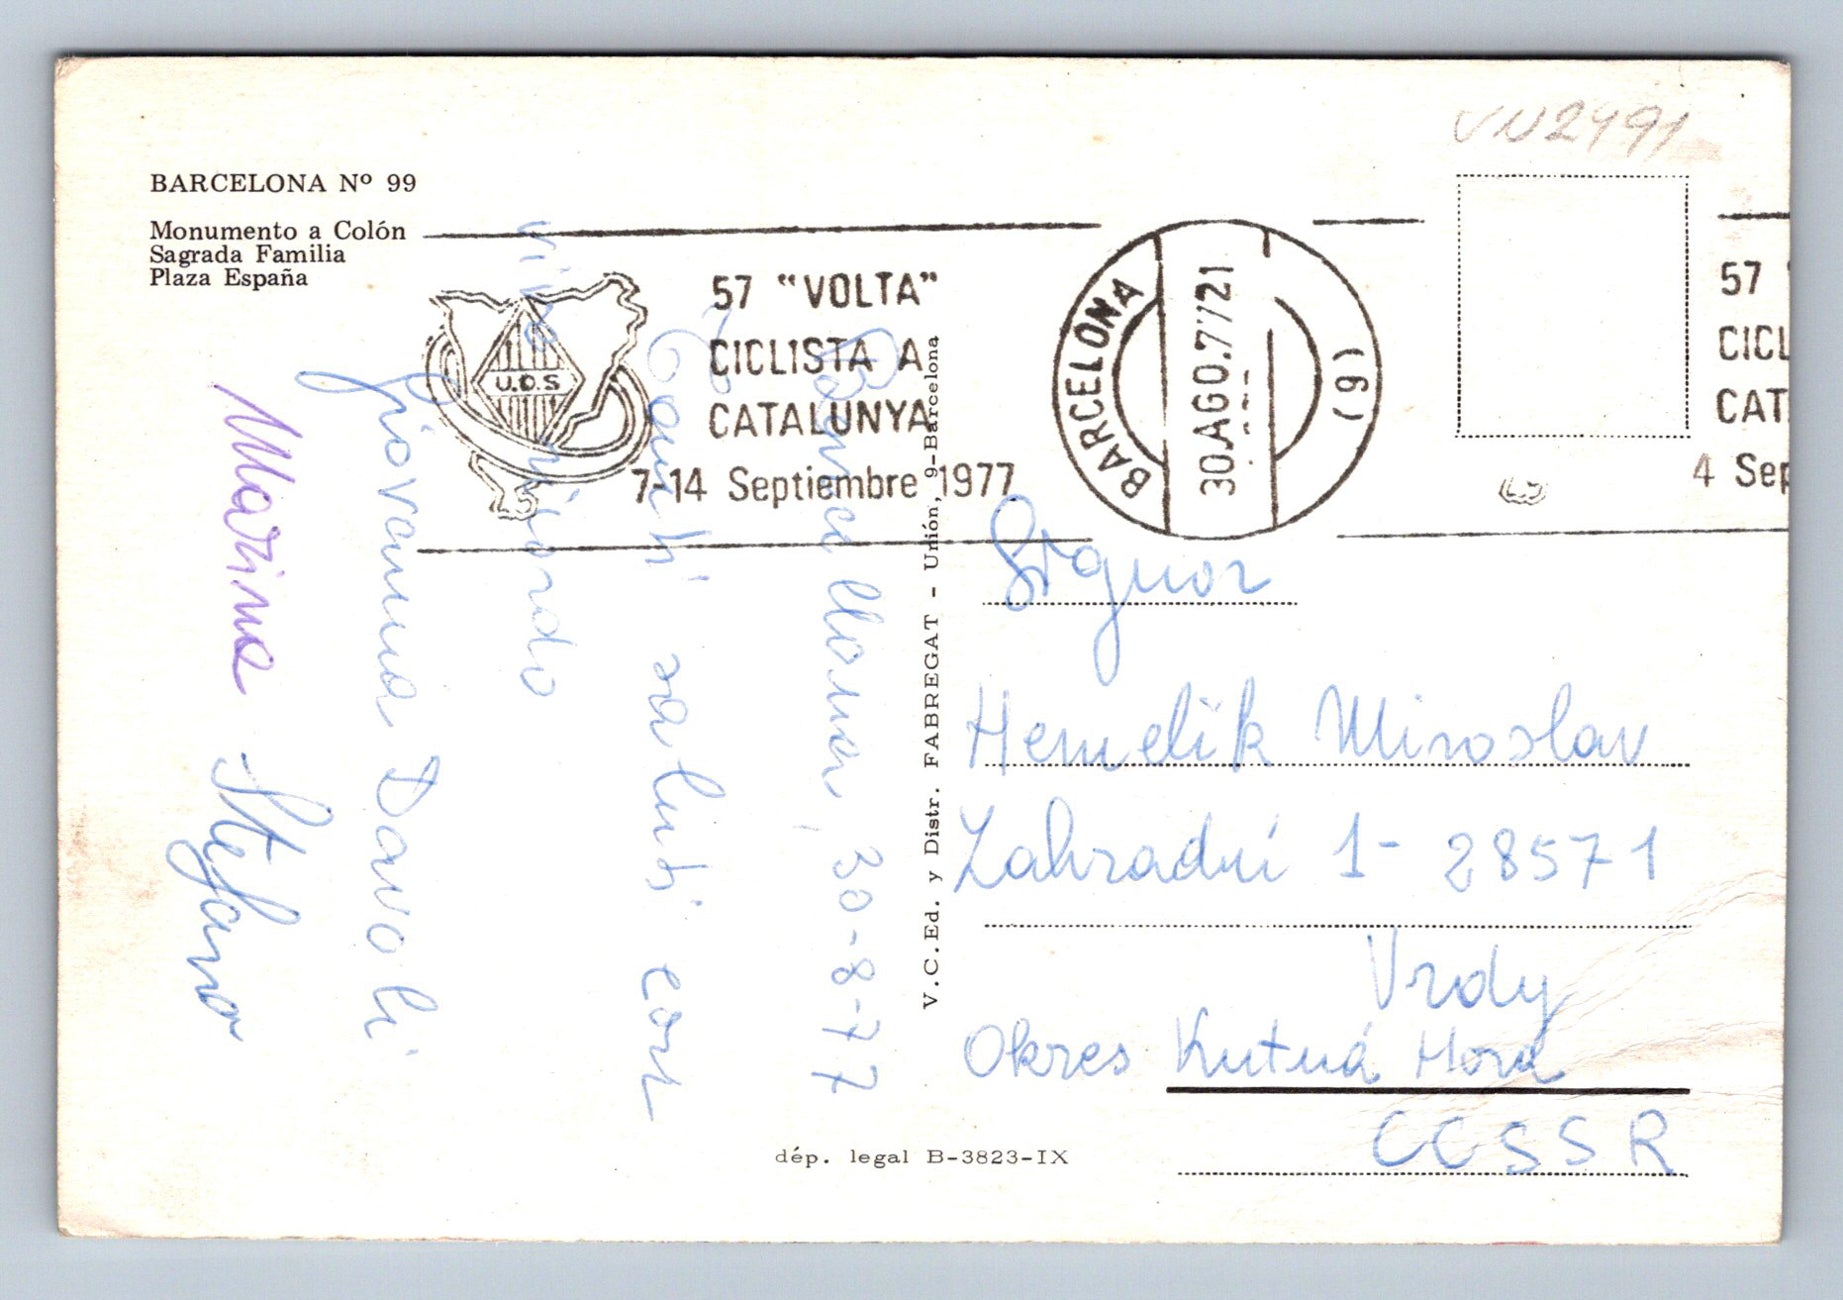 VN2491
BARCELONA Nº 99
Monumento a Colón
Sagrada Familia
Plaza España
57 "VOLTA"
CICLISTA A
CATALUNYA
7-14 Septiembre 1977
U.D.S
BARCELONA
30.AGO.77 21
(9)
57
CICL
CAT.
4 Sep
30-8-77
Tanti saluti con
vivo ricordo
Giovanna Davoli
Marina Stefano
V.C.Ed. y Distr. FABREGAT - Unión, 9-Barcelona
Signor
Hemelík Miroslav
Zahradní 1- 28571
Vrdy
Okres Kutná Hora
CCSSR
dép. legal B-3823-IX